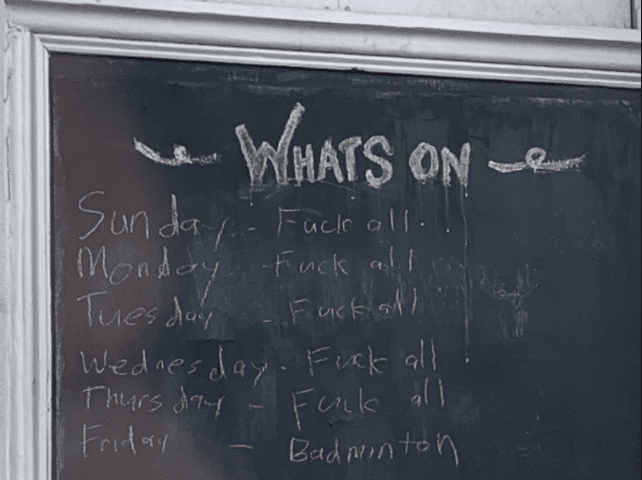 WHATS ON
Sunday - Fuck all . .
Monday - Fuck all
Tuesday - Fuck all
Wednesday - Fuck all
Thursday - Fuck all
Friday - Badminton